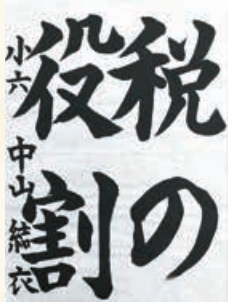 税の
役割
小六 中山 結衣